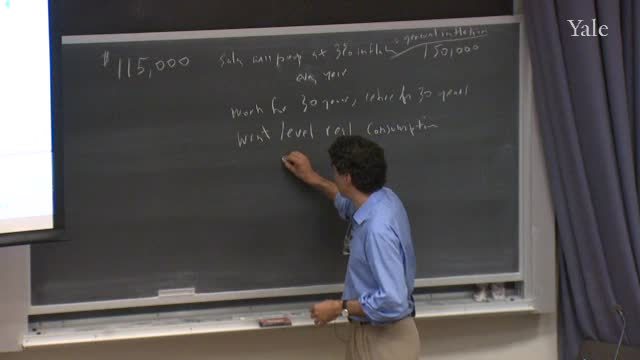 Yale
general inflation
$115,000 Salary will prog at 3% inflation 150,000
every year
work for 30 years, retire for 30 years
want level real consumption